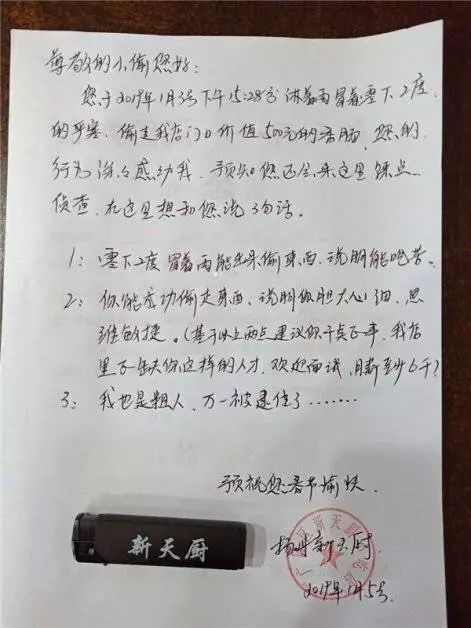 尊敬的小偷您好:
您于2019年1月3号下午15:28分淋着雨冒着零下2度
的严寒、偷走我店门口价值500元的香肠,您的
行为深深感动我、预知您还会来这里踩点
侦查、在这里想和您说3句话。
1:零下2度冒着雨能出来偷东西、说明能吃苦。
2:你能成功偷走东西、说明你胆大心细、思
维敏捷。(基于以上两点建议你干点正事、我店
里正缺你这样的人才、欢迎面试、月薪至少6千)
3:我也是粗人、万一被逮住了.......
预祝您春节愉快.
扬州新天厨.
2019年1月5号.
新天厨